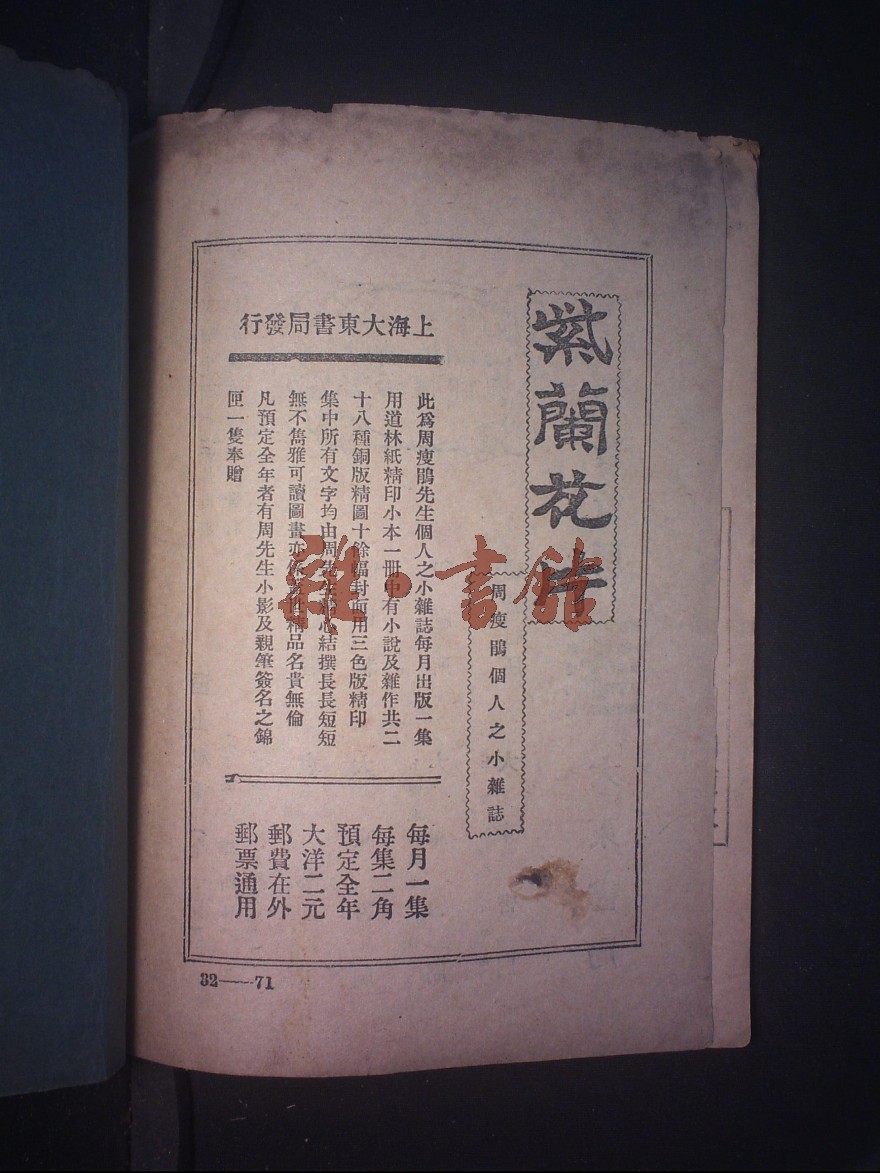 紫蘭花片
周瘦鵑個人之小雜誌
上海大東書局發行
此爲周瘦鵑先生個人之小雜誌每月出版一集
用道林紙精印小本一冊中有小說及雜作共二
十八種銅版精圖十餘幅封面用三色版精印
集中所有文字均由周先生 心結撰長長短短
無不雋雅可讀圖畫亦係 世精品名貴無倫
凡預定全年者有周先生小影及親筆簽名之錦
匣一隻奉贈
每月一集
每集二角
預定全年
大洋二元
郵費在外
郵票通用
32——71
雜·書館